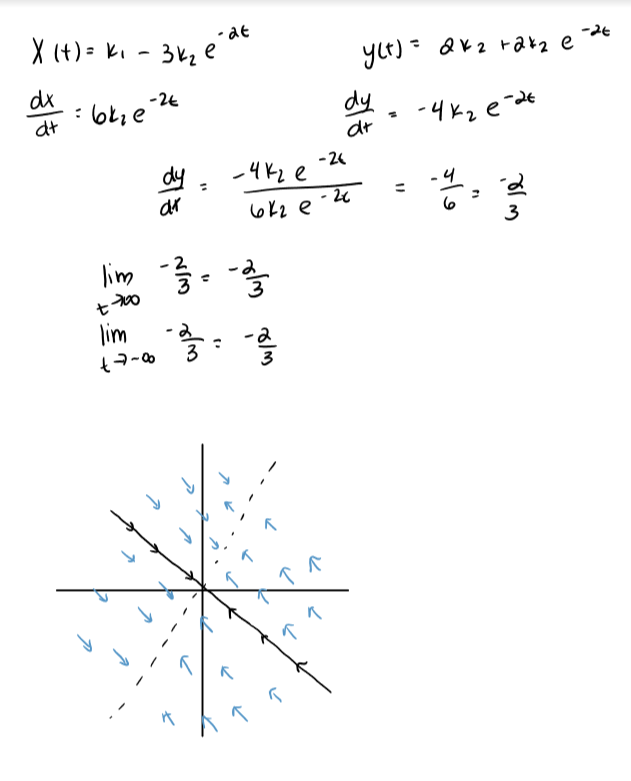 x(t) = k₁ - 3k₂ e^{-2t}    y(t) = 2k₂ + 2k₂ e^{-2t}
dx/dt = 6k₂ e^{-2t}    dy/dt = -4k₂ e^{-2t}
dy/dx = (-4k₂ e^{-2t})/(6k₂ e^{-2t}) = -4/6 = -2/3
lim t→∞ -2/3 = -2/3
lim t→-∞ -2/3 = -2/3